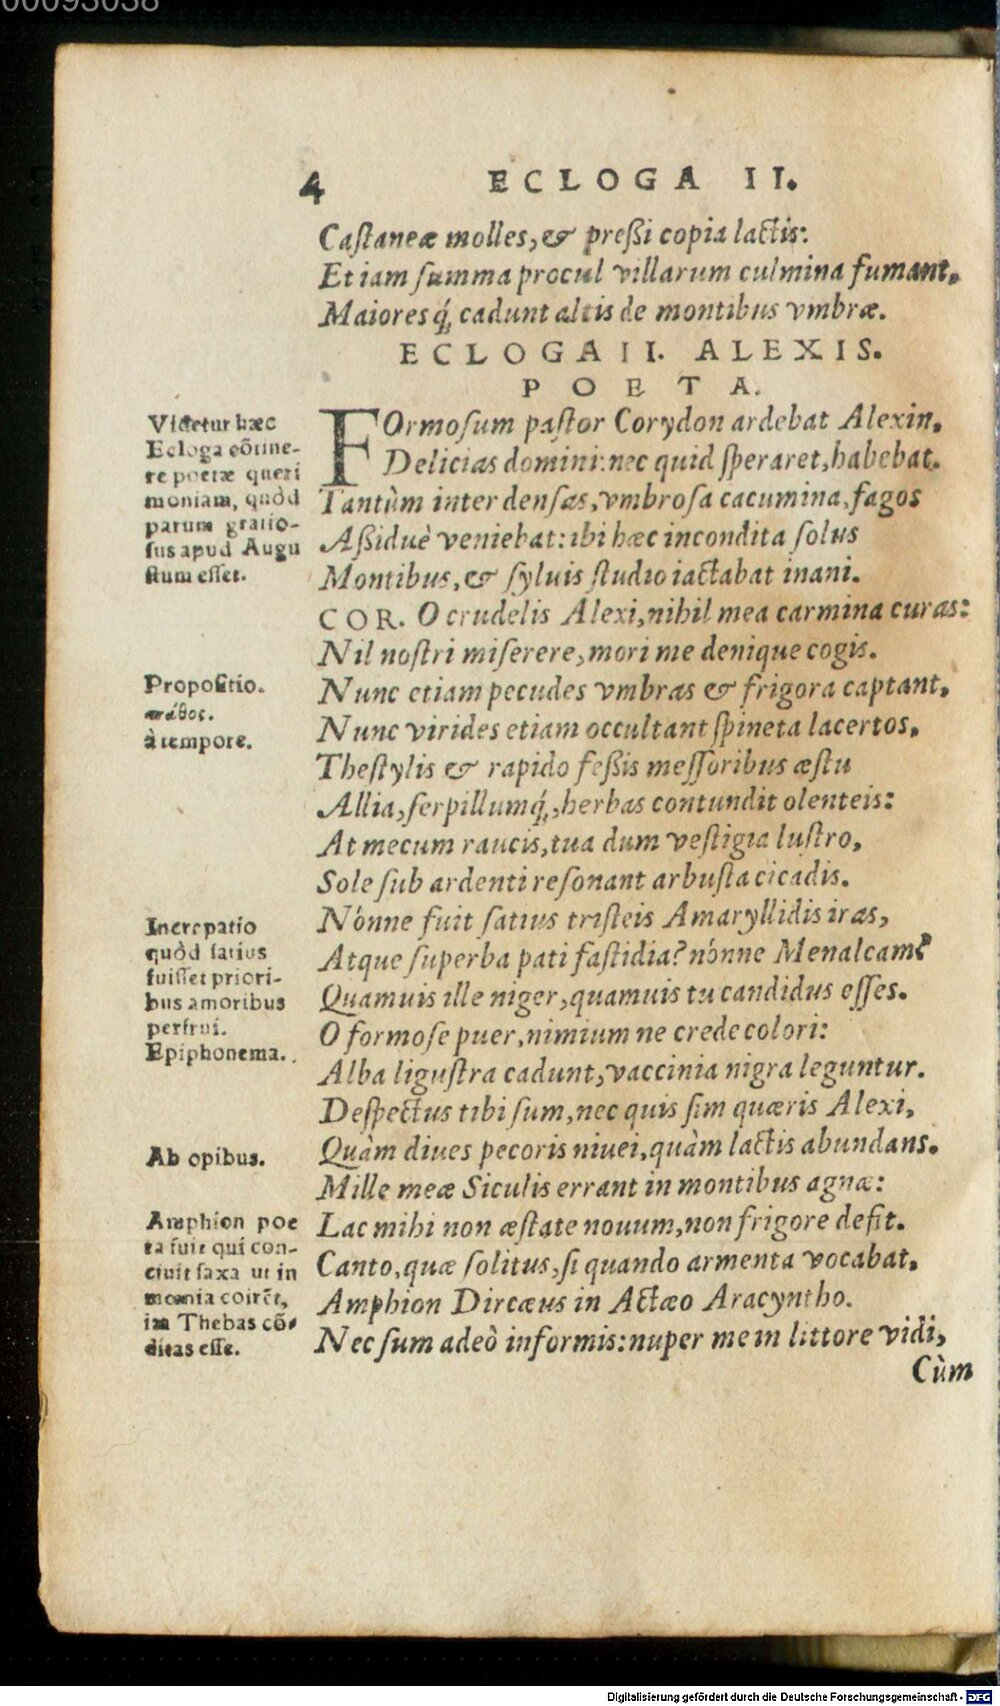 00093038
4 ECLOGA II.
Castaneæ molles, & preßi copia lactis:
Et iam summa procul villarum culmina fumant,
Maioresq́; cadunt altis de montibus vmbræ.
ECLOGA II. ALEXIS.
POETA.
FOrmosum pastor Corydon ardebat Alexin,
Delicias domini: nec quid speraret, habebat.
Tantùm inter densas, vmbrosa cacumina, fagos
Aßiduè veniebat: ibi hæc incondita solus
Montibus, & syluis studio iactabat inani.
COR. O crudelis Alexi, nihil mea carmina curas:
Nil nostri miserere, mori me denique cogis.
Nunc etiam pecudes vmbras & frigora captant,
Nunc virides etiam occultant spineta lacertos,
Thestylis & rapido feßis messoribus æstu
Allia, serpillumq́;, herbas contundit olenteis:
At mecum raucis, tua dum vestigia lustro,
Sole sub ardenti resonant arbusta cicadis.
Nónne fuit satius tristeis Amaryllidis iras,
Atque superba pati fastidia? nónne Menalcam?
Quamuis ille niger, quamuis tu candidus esses.
O formose puer, nimium ne crede colori:
Alba ligustra cadunt, vaccinia nigra leguntur.
Despectus tibi sum, nec quis sim quæris Alexi,
Quàm diues pecoris niuei, quàm lactis abundans.
Mille meæ Siculis errant in montibus agnæ:
Lac mihi non æstate nouum, non frigore defit.
Canto, quæ solitus, si quando armenta vocabat,
Amphion Dircæus in Actæo Aracyntho.
Nec sum adeò informis: nuper me in littore vidi,
Cùm
Videtur hæc
Ecloga cõtine-
re poetæ queri
moniam, quòd
parum gratio-
sus apud Augu
stum esset.
Propositio.
πάθος.
à tempore.
Increpatio
quòd satius
fuisset priori-
bus amoribus
perfrui.
Epiphonema.
Ab opibus.
Amphion poe
ta fuit qui con-
ciuit saxa ut in
mœnia coirẽt,
im Thebas cõ-
ditas esse.
Digitalisierung gefördert durch die Deutsche Forschungsgemeinschaft - DFG